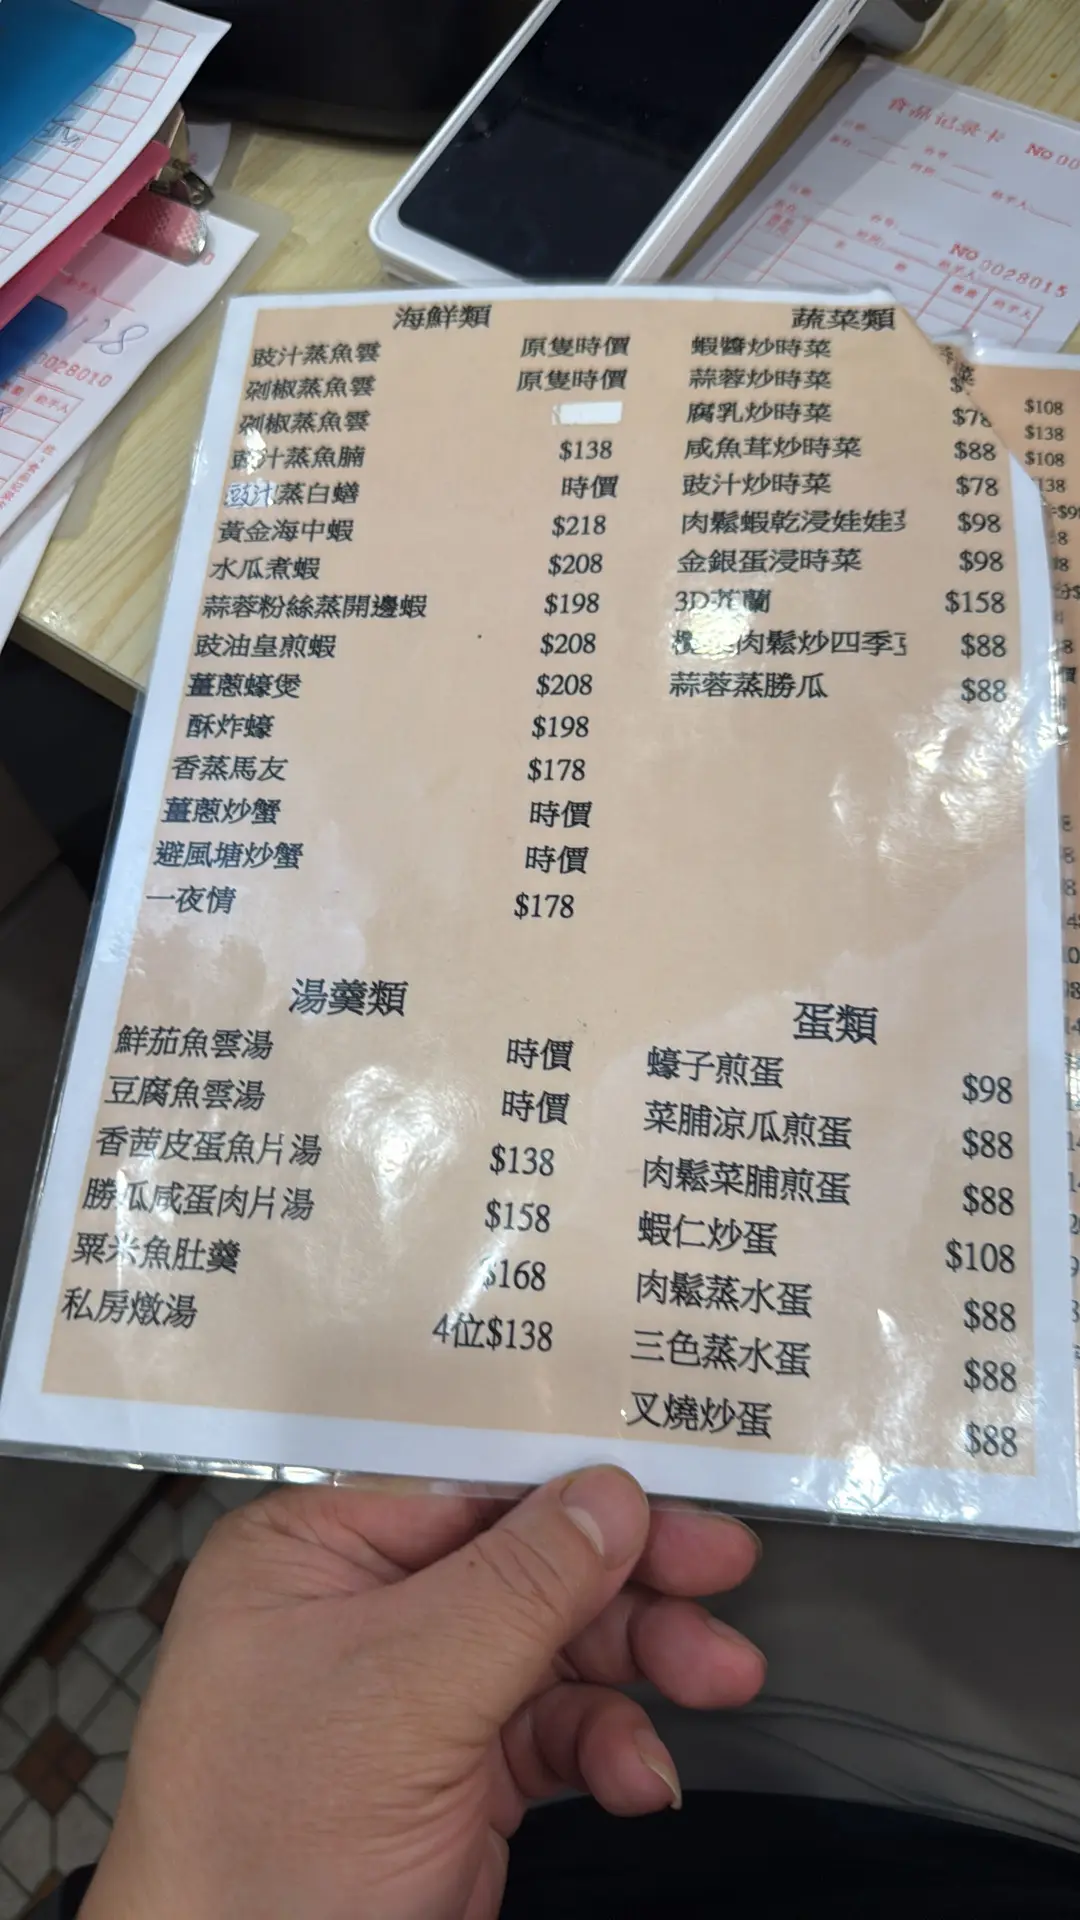 食品记录卡
No 00
No 0028015
0028010
128
海鮮類
豉汁蒸魚雲 原隻時價
剁椒蒸魚雲 原隻時價
剁椒蒸魚雲
豉汁蒸魚腩 $138
豉汁蒸白鱔 時價
黃金海中蝦 $218
水瓜煮蝦 $208
蒜蓉粉絲蒸開邊蝦 $198
豉油皇煎蝦 $208
薑蔥蠔煲 $208
酥炸蠔 $198
香蒸馬友 $178
薑蔥炒蟹 時價
避風塘炒蟹 時價
一夜情 $178
蔬菜類
蝦醬炒時菜
蒜蓉炒時菜
腐乳炒時菜 $78
咸魚茸炒時菜 $88
豉汁炒時菜 $78
肉鬆蝦乾浸娃娃 $98
金銀蛋浸時菜 $98
3D芥蘭 $158
肉鬆炒四季 $88
蒜蓉蒸勝瓜 $88
湯羹類
鮮茄魚雲湯 時價
豆腐魚雲湯 時價
香茜皮蛋魚片湯 $138
勝瓜咸蛋肉片湯 $158
粟米魚肚羹 $168
私房燉湯 4位$138
蛋類
蠔子煎蛋 $98
菜脯涼瓜煎蛋 $88
肉鬆菜脯煎蛋 $88
蝦仁炒蛋 $108
肉鬆蒸水蛋 $88
三色蒸水蛋 $88
叉燒炒蛋 $88
$108
$138
$108